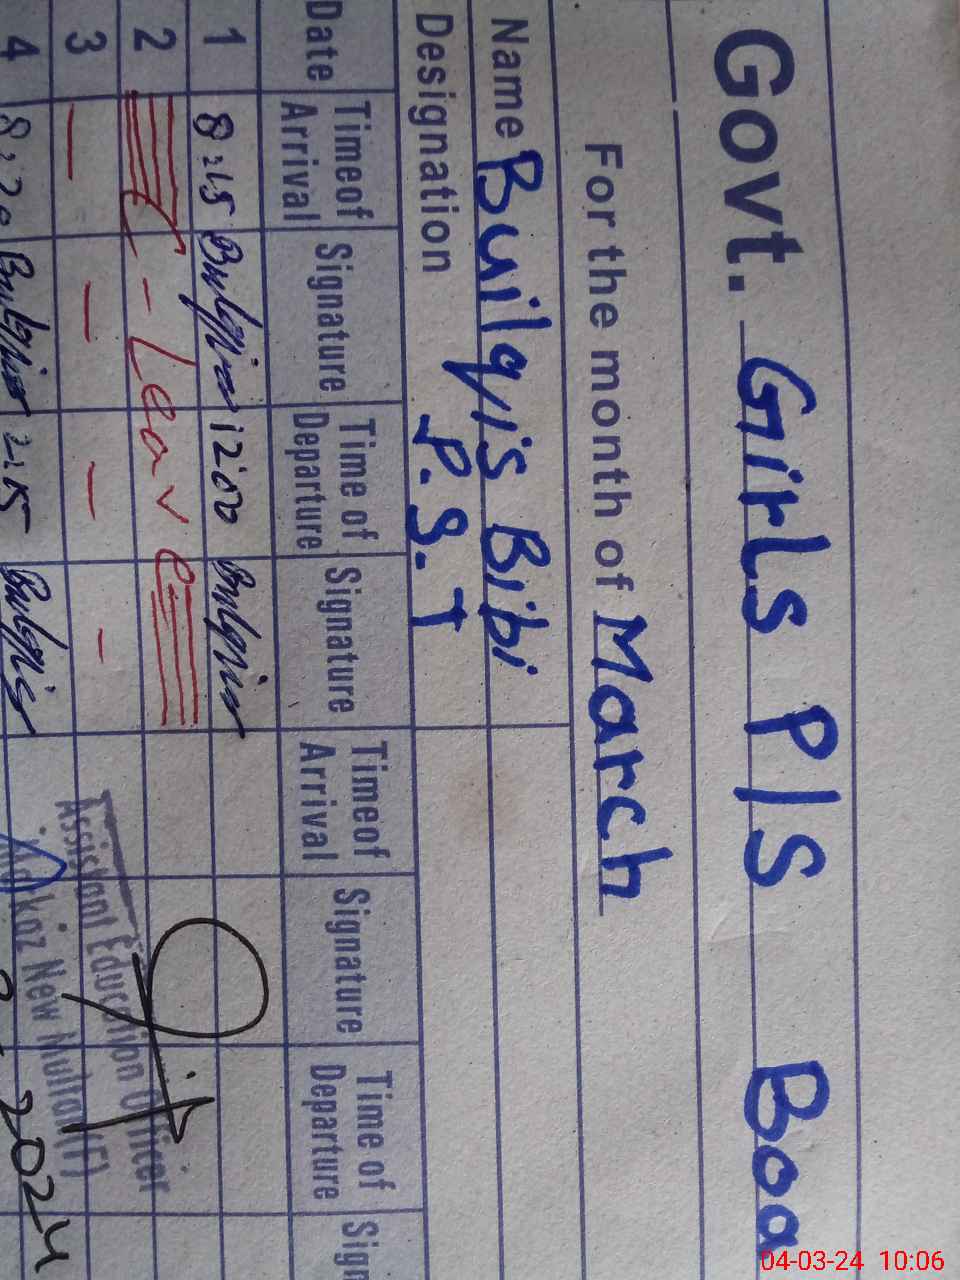 Govt. Girls P/S Boa
For the month of March
Name Builqis Bibi
Designation P.S.T
Date Timeof Arrival Signature Time of Departure Signature Timeof Arrival Signature Time of Departure Sign
1 8:15 Bulqis 1200 Bulqis
2 - Leave
3 - - - -
4 8:20 Bulqis 2:15 Bulqis
Assistant Education Officer
Markaz New Multan (F)
2024
04-03-24 10:06